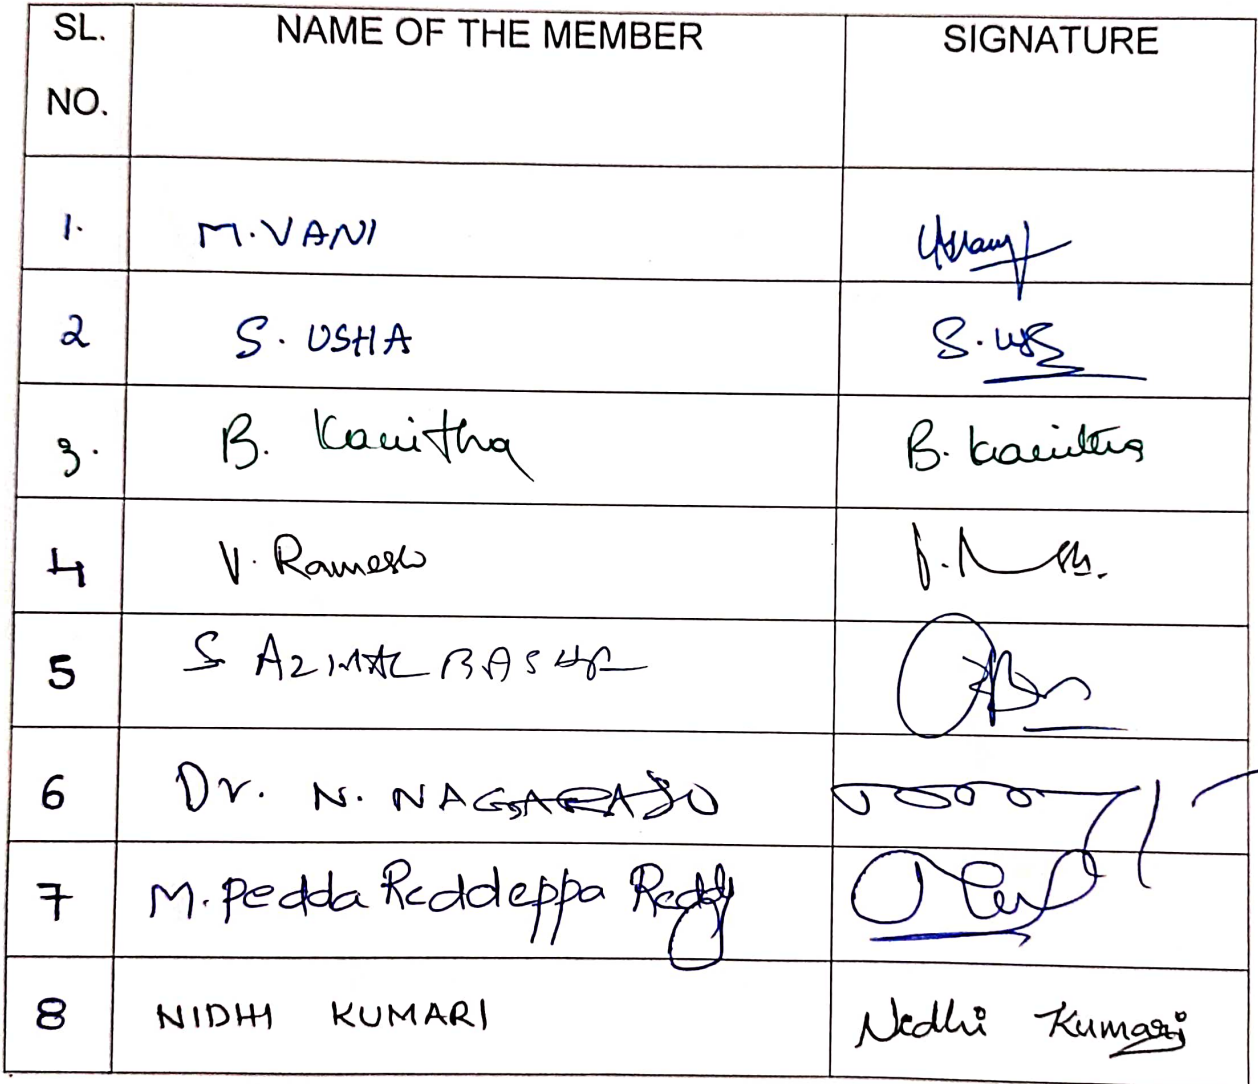 SL. NO. NAME OF THE MEMBER SIGNATURE
1. M. VANI
2 S. USHA
3. B. Kavitha B. Kavitha
4 V. Ramesh
5 S AZMAL BASHA
6 Dr. N. NAGARAJU
7 M. Pedda Reddeppa Reddy
8 NIDHI KUMARI Nidhi Kumari